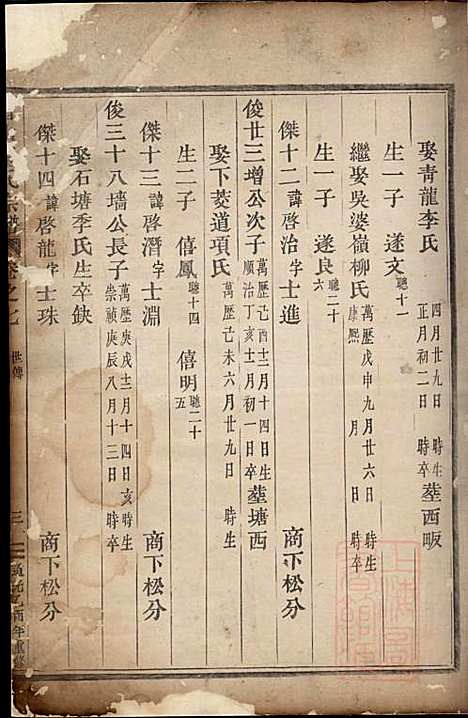 娶青龍李氏 四月廿九日 時生 正月初二日 時卒 塟西畈
生一子 遂文聰十一
繼娶吳婆嶺柳氏 萬歷戊申九月廿六日 時生 康熙 年 月 日 時卒
生一子 遂良聰二十六
傑十二諱啓治字士進 商下松分
俊廿三增公次子 萬歷庚 十二月十四日 生 順治丁亥十二月初一日 卒 塟塘西
娶下菱道項氏 萬歷己未六月廿九日 時生
生二子 僖鳳聰十四 僖明聰二十五
傑十三諱啓潛字士淵 商下松分
俊三十八墻公長子 萬歷庚戌十二月十四日亥時生 崇禎庚辰八月十三日 時卒
娶石塘季氏生卒缺
傑十四諱啓龍字士珠 商下松分
世傳